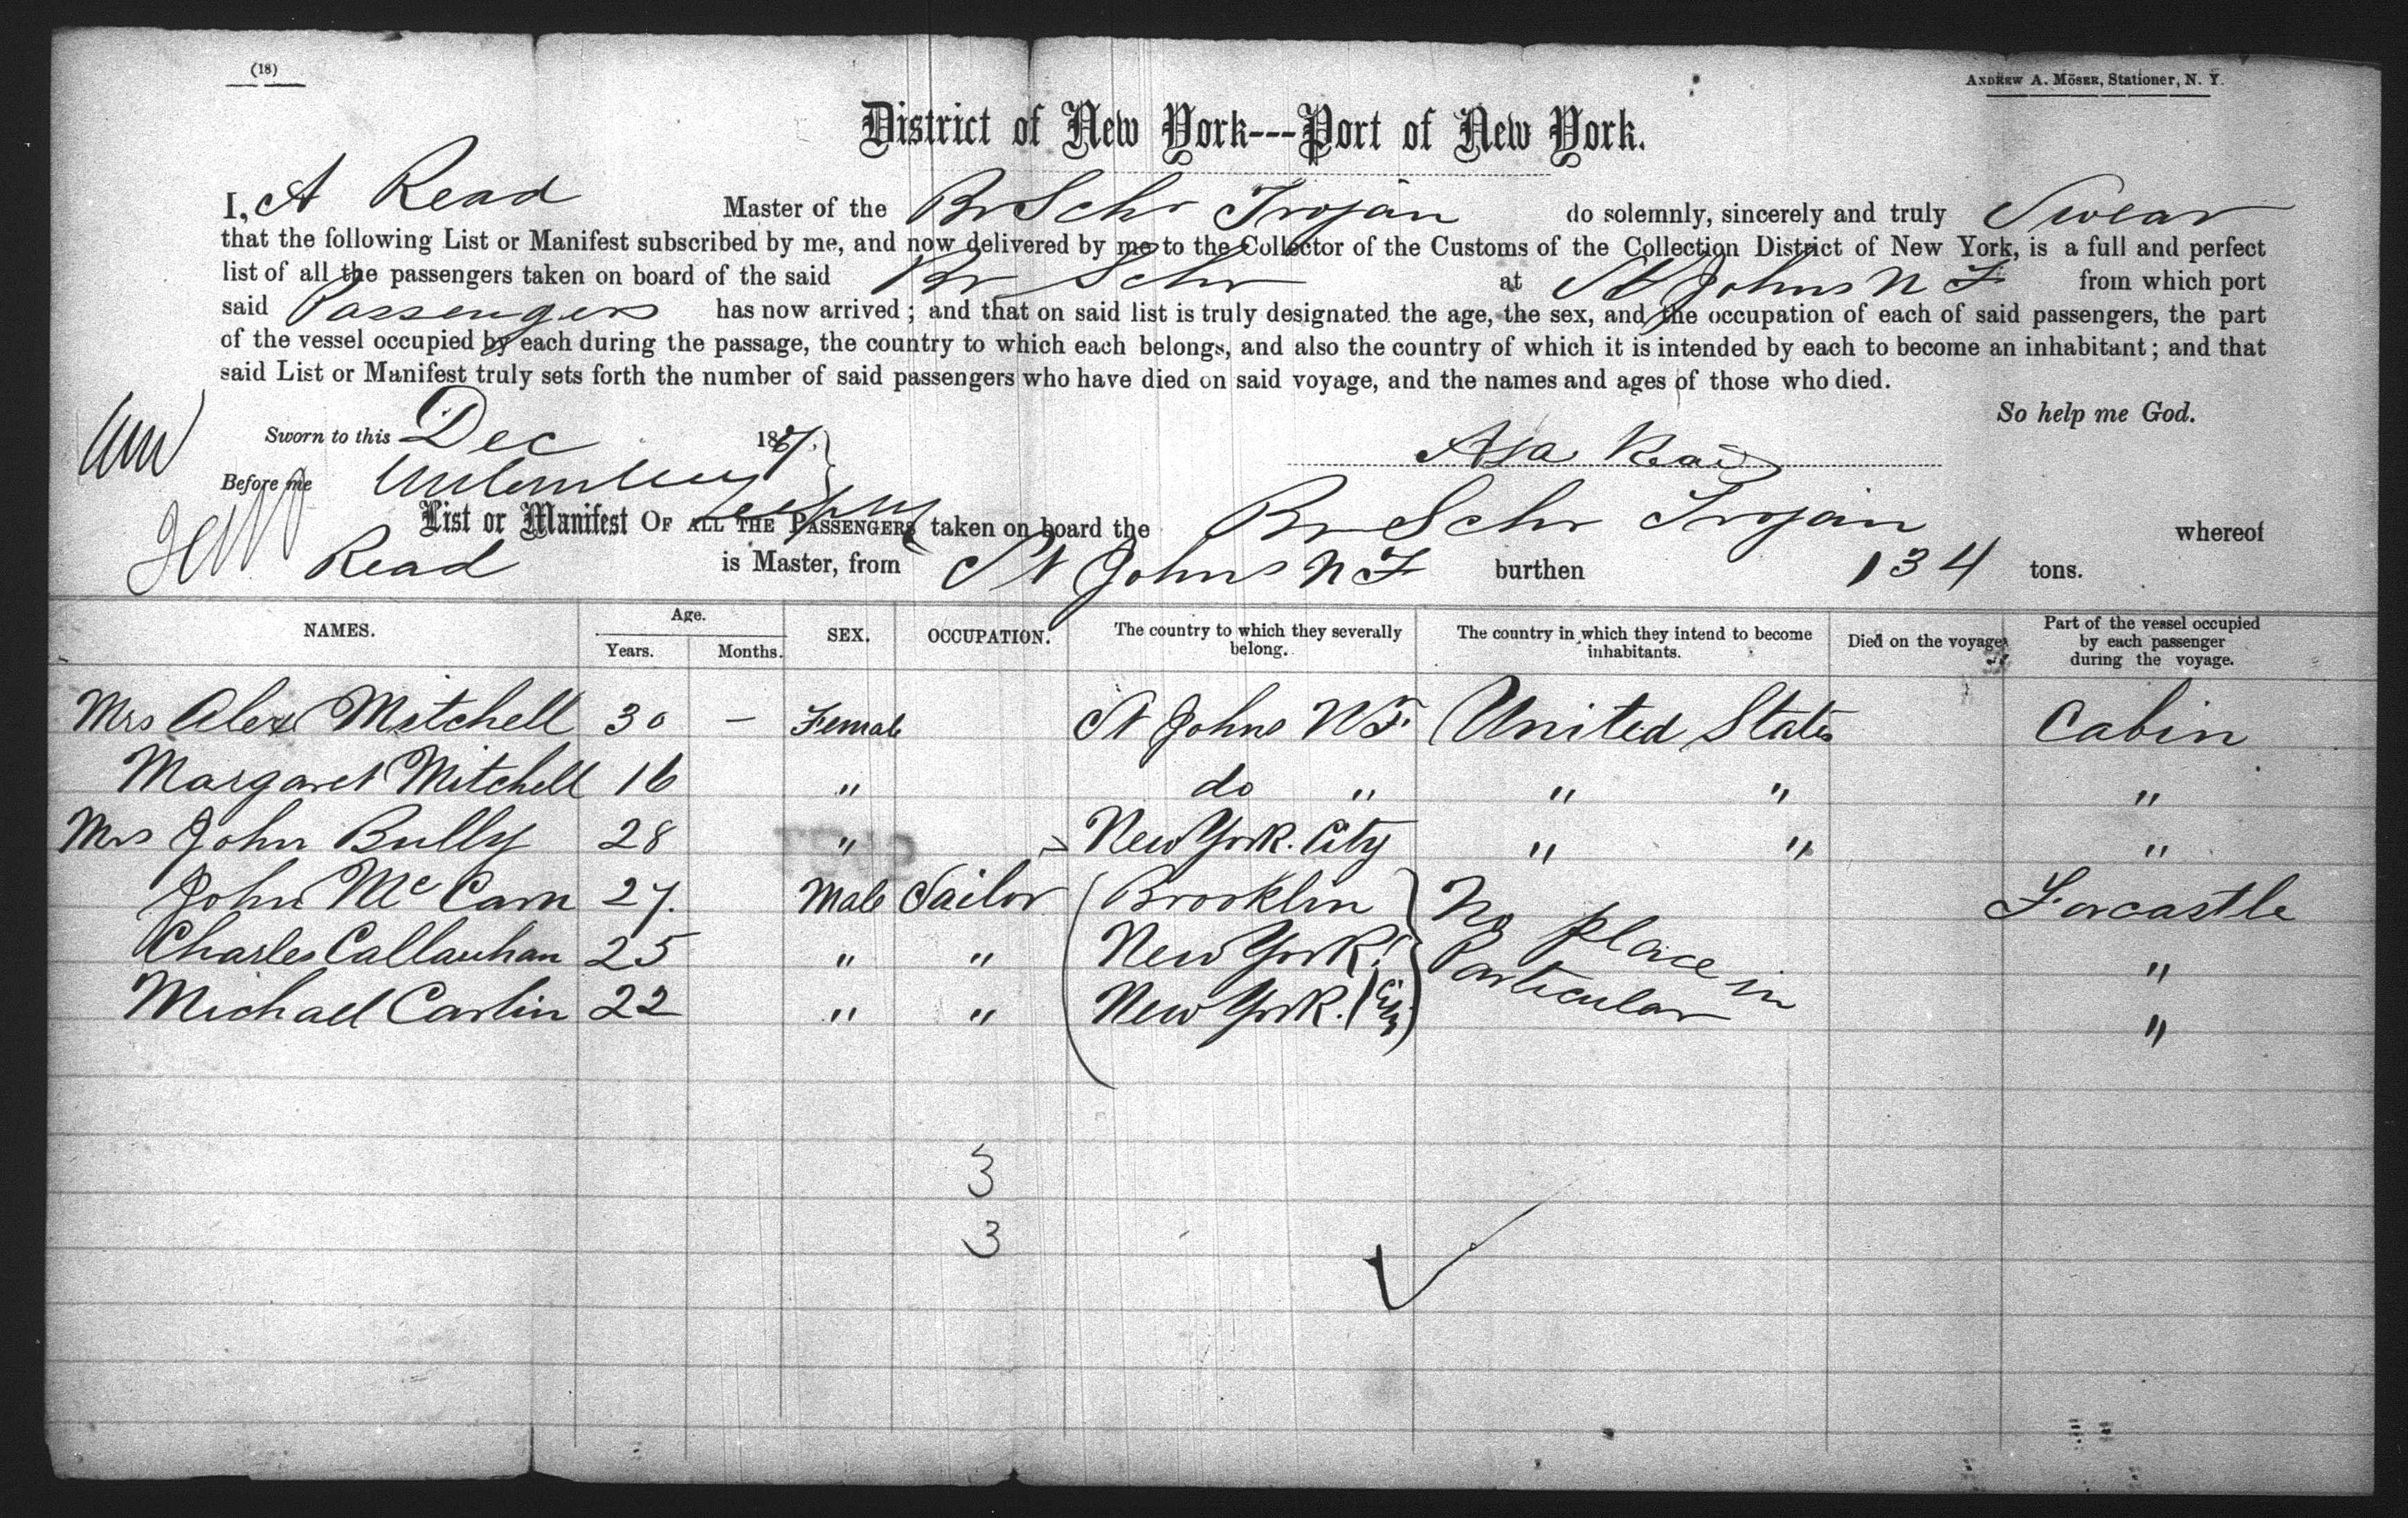 (18)
ANDREW A. MÖSER, Stationer, N. Y.
District of New York---Port of New York.
I, A Read Master of the Br Schr Trojan do solemnly, sincerely and truly Swear
that the following List or Manifest subscribed by me, and now delivered by me to the Collector of the Customs of the Collection District of New York, is a full and perfect
list of all the passengers taken on board of the said Br Schr at St Johns N F from which port
said Passengers has now arrived; and that on said list is truly designated the age, the sex, and the occupation of each of said passengers, the part
of the vessel occupied by each during the passage, the country to which each belongs, and also the country of which it is intended by each to become an inhabitant; and that
said List or Manifest truly sets forth the number of said passengers who have died on said voyage, and the names and ages of those who died.
So help me God.
Sworn to this Dec 18
Asa Read
Before me
List or Manifest OF ALL THE PASSENGERS taken on board the Br Schr Trojan whereof
Read is Master, from St Johns N F burthen 134 tons.
NAMES. Age. Years. Months. SEX. OCCUPATION. The country to which they severally belong. The country in which they intend to become inhabitants. Died on the voyage. Part of the vessel occupied by each passenger during the voyage.
Mrs Alex Mitchell 30 - Female St Johns NF United States Cabin
Margaret Mitchell 16 " do " " " "
Mrs John Bully 28 " New York City " " "
John Mc Carn 27. Male Sailor Brooklin No place in Particular Forcastle
Charles Callauhan 25 " " New York "
Michael Carlin 22 " " New York. City "
3
3